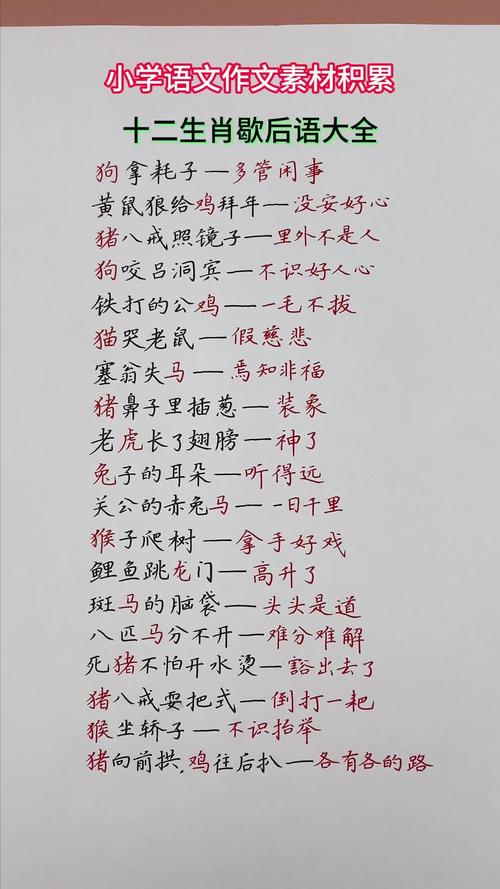 小学语文作文素材积累
十二生肖歇后语大全
狗拿耗子—多管闲事
黄鼠狼给鸡拜年—没安好心
猪八戒照镜子—里外不是人
狗咬吕洞宾—不识好人心
铁打的公鸡—一毛不拔
猫哭老鼠—假慈悲
塞翁失马—焉知非福
猪鼻子里插葱—装象
老虎长了翅膀—神了
兔子的耳朵—听得远
关公的赤兔马—一日千里
猴子爬树—拿手好戏
鲤鱼跳龙门—高升了
斑马的脑袋—头头是道
八匹马分不开—难分难解
死猪不怕开水烫—豁出去了
猪八戒耍把式—倒打一耙
猴坐轿子—不识抬举
猪向前拱,鸡往后扒—各有各的路